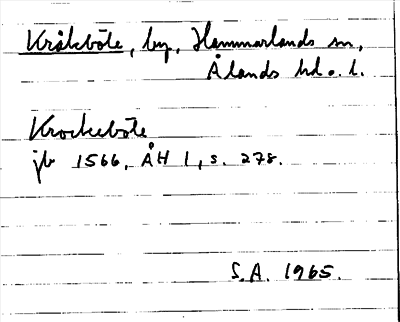 Kråkböle, by, Hammarlands sn,
Ålands hd o. l.
Krockeböle
jb 1566, ÅH 1, s. 278.
S.A. 1965.